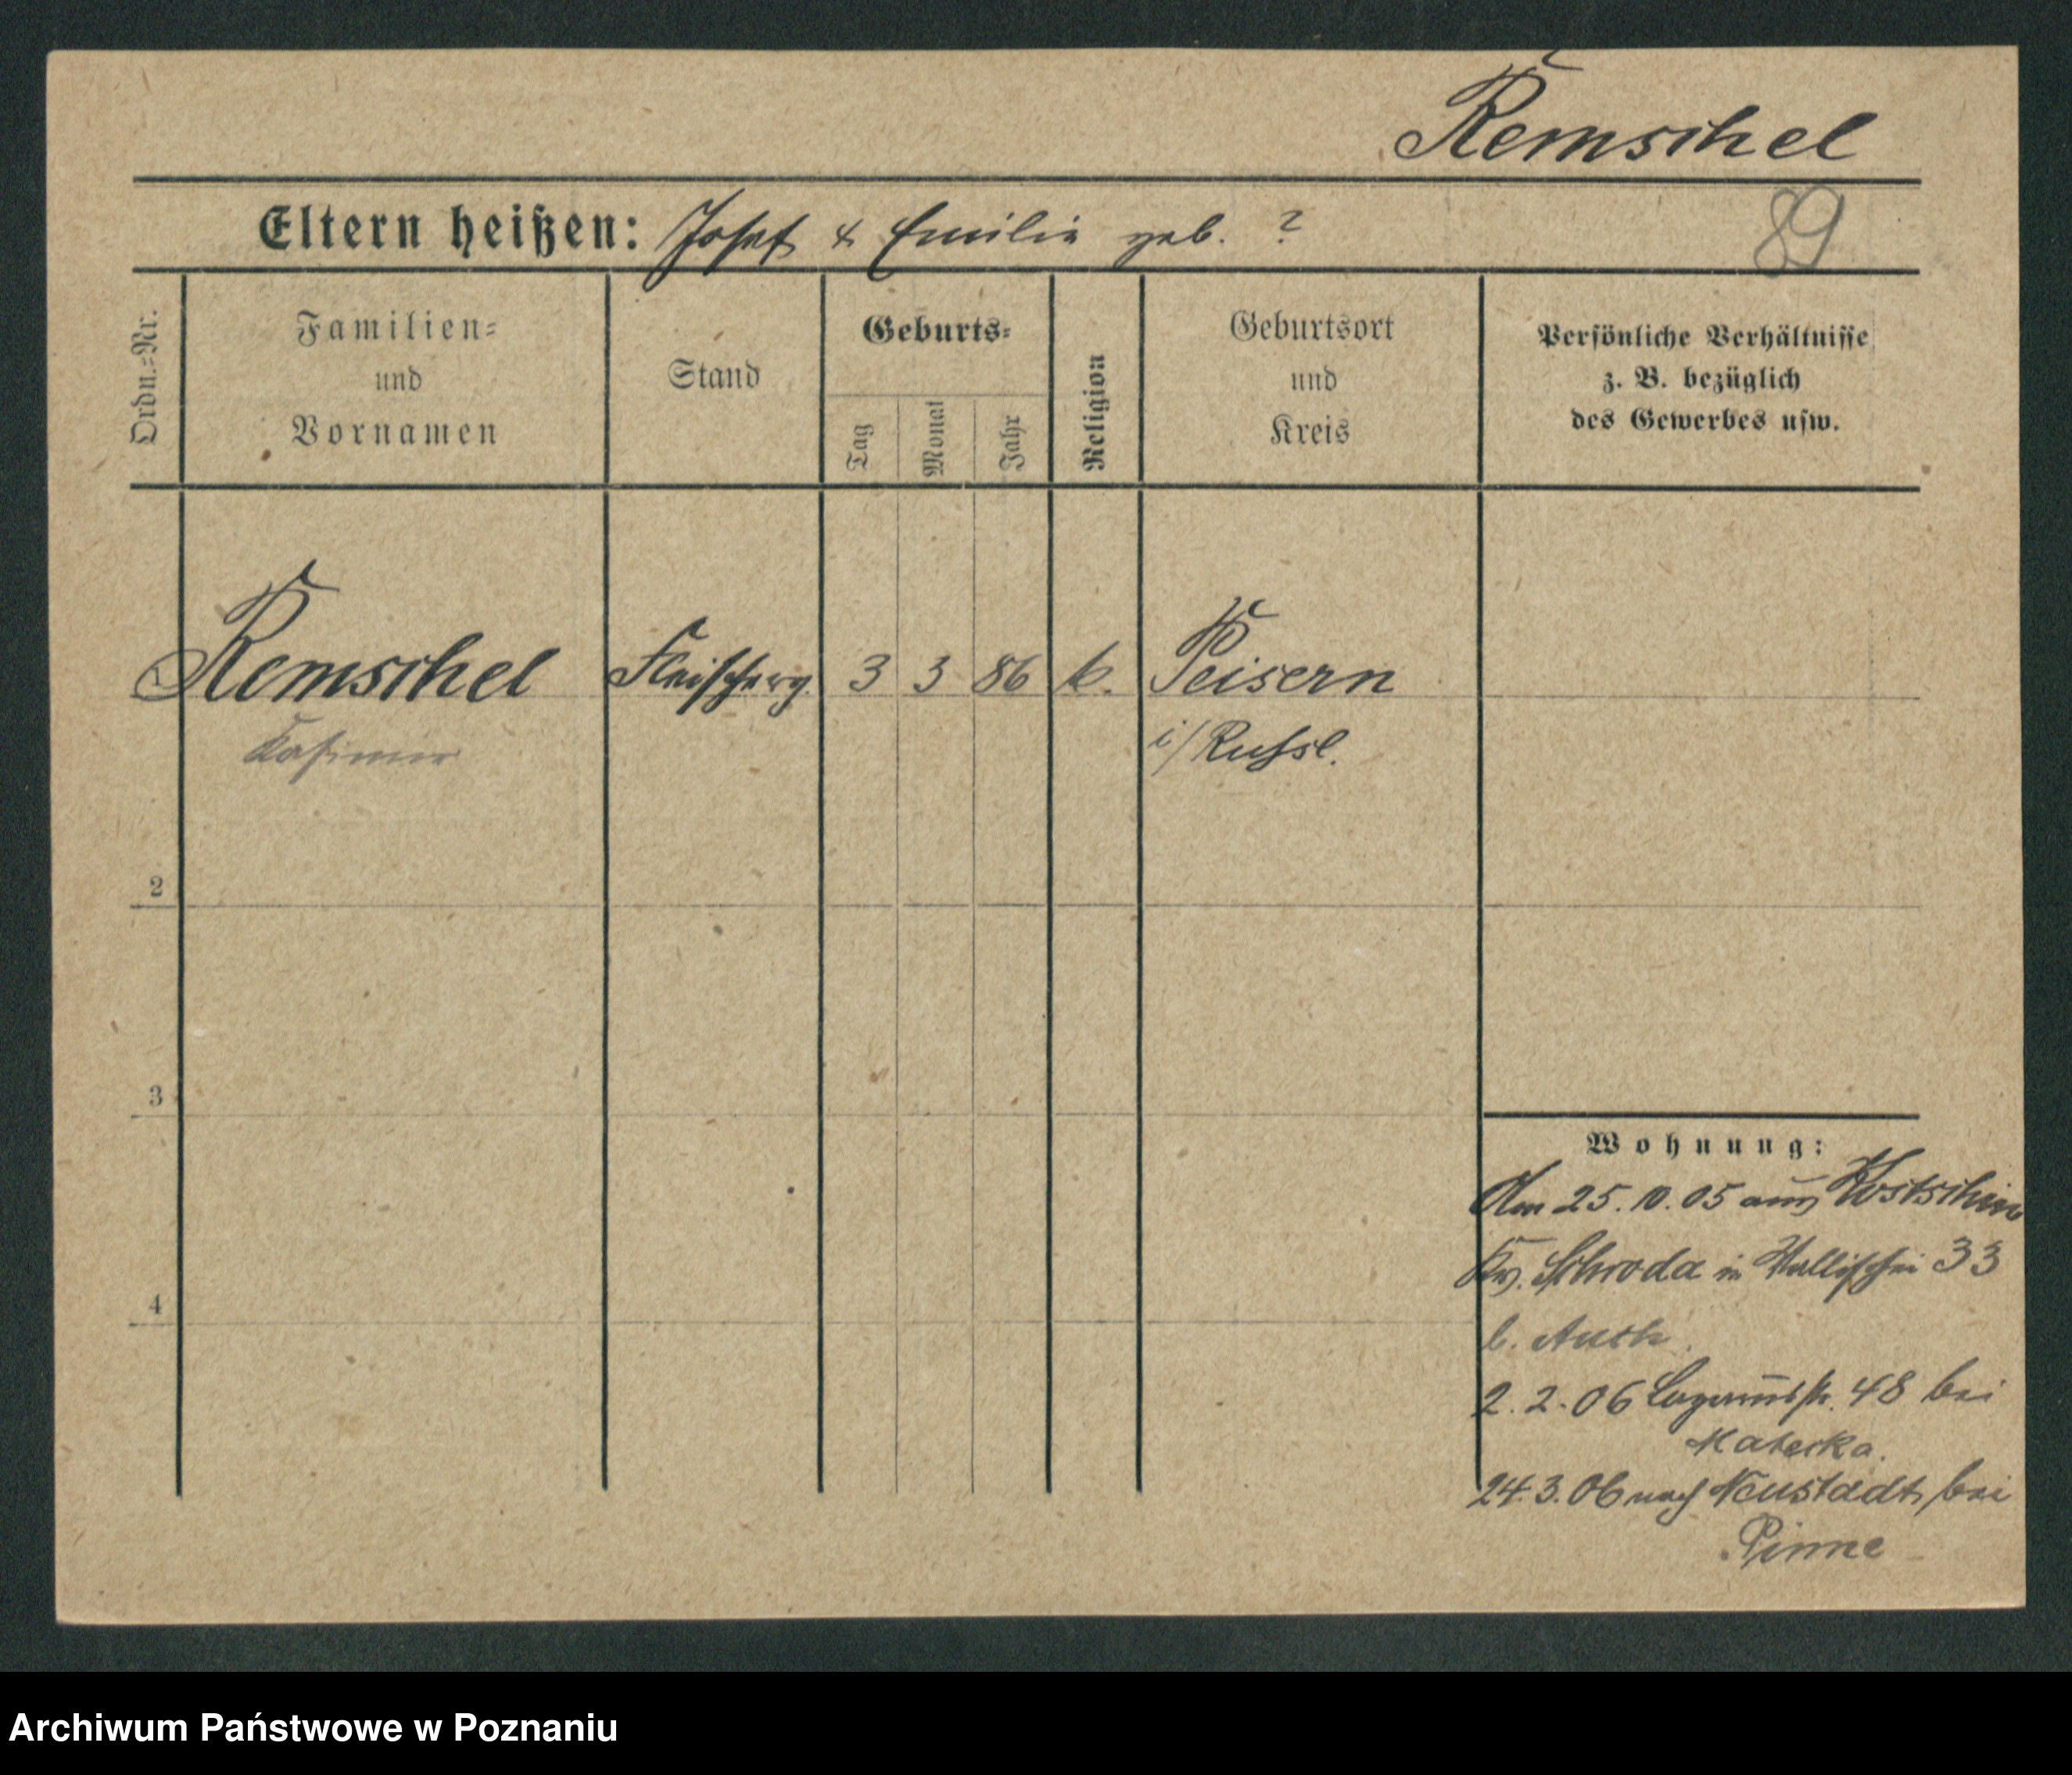 Remschel
Eltern heißen: Josef & Emilie geb. ?
89
Ordn.=Nr.
Familien=
und
Vornamen
Stand
Geburts=
Tag
Monat
Jahr
Religion
Geburtsort
und
Kreis
Persönliche Verhältnisse
z. B. bezüglich
des Gewerbes usw.
1 Remschel Fleischerg. 3 3 86 k. Peisern
Kasimir i/Russl.
2
3
4
Wohnung:
Am 25.10.05 aus Kostschin
Kr. Schroda in Wallischei 33
b. Auth.
2.2.06 48 bei
24.3.06 nach Neustadt bei
Pinne
Archiwum Państwowe w Poznaniu